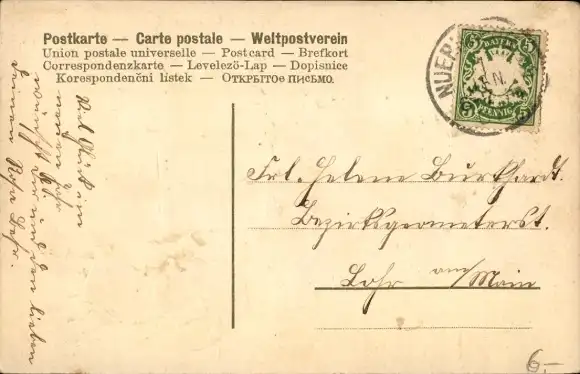 Postkarte — Carte postale — Weltpostverein
Union postale universelle — Postcard — Brefkort
Correspondenzkarte — Levelező-Lap — Dopisnice
Korespondenční lístek — ОТКРЫТОЕ ПИСЬМО.
5 BAYERN 5
5 PFENNIG 5
NUER
Frl. Helene Burkhardt.
Bezirksgeometerst.
Lohr am/Main
Viel Glück im
neuen
wünscht
lieben
6.-